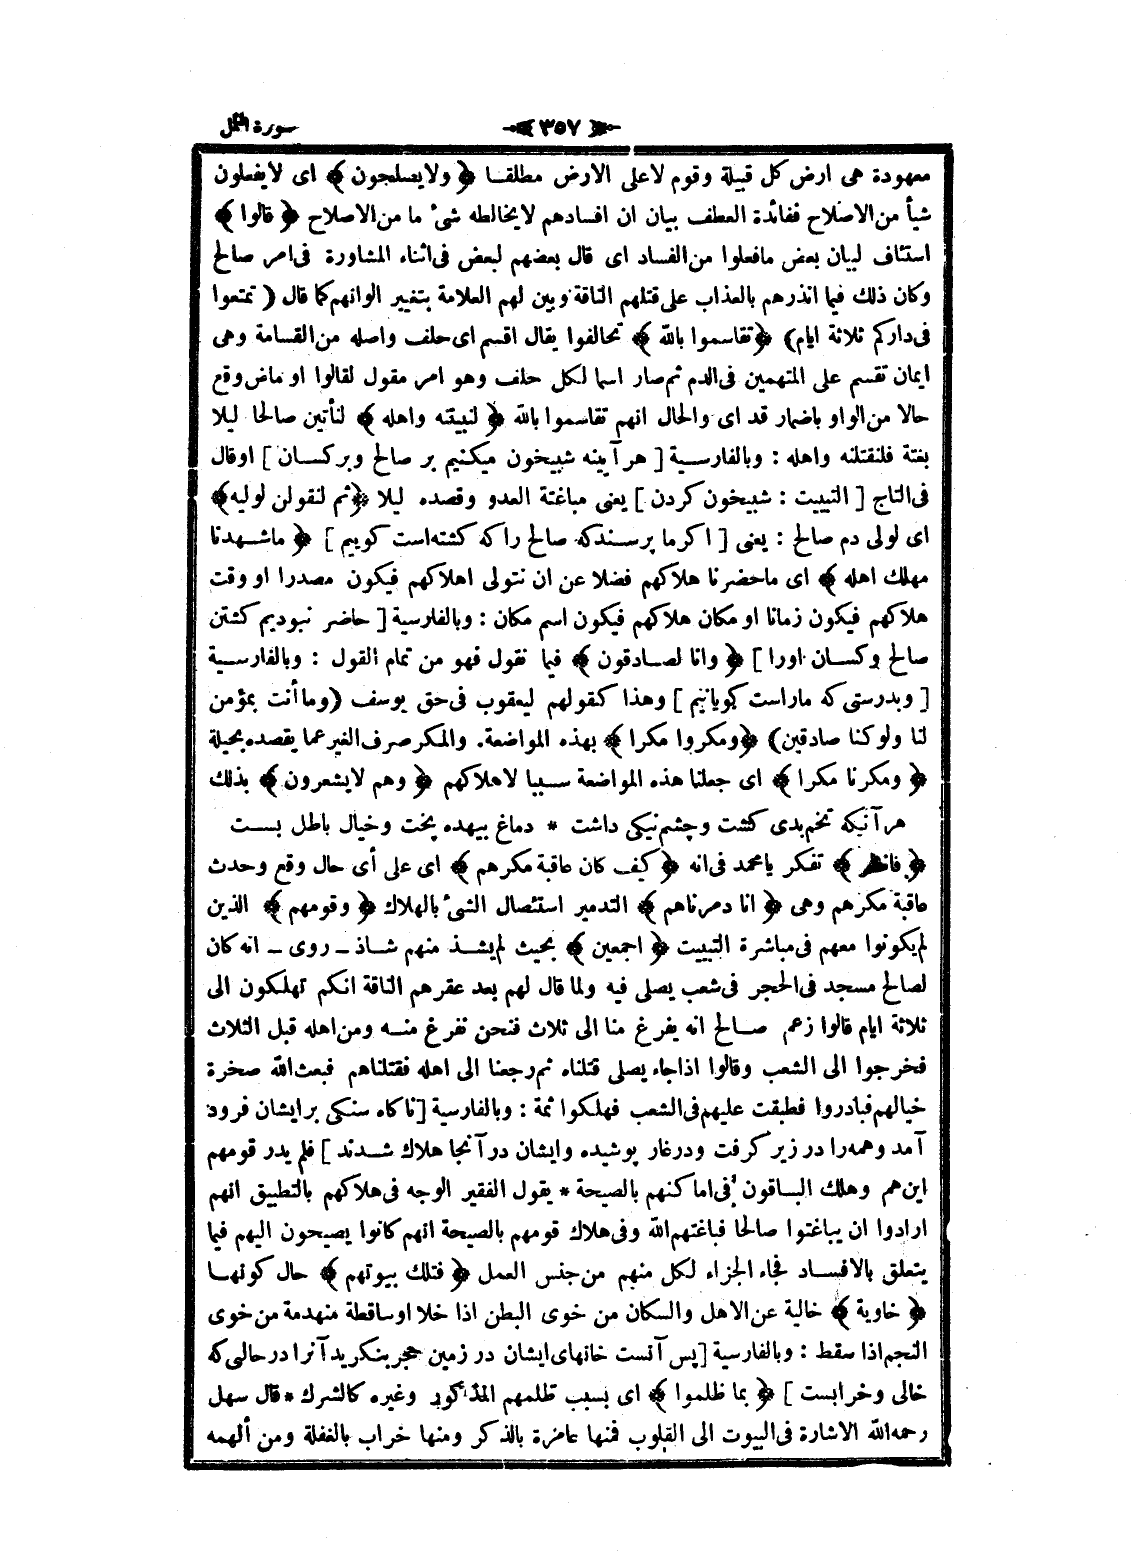 سورة النمل
٣٥٧
معهودة هى ارض كل قبيلة وقوم لاعلى الارض مطلقا ﴿ ولايصلحون ﴾ اى لايفعلون
شيأ من الاصلاح ففائدة العطف بيان ان افسادهم لايخالطه شئ ما من الاصلاح ﴿ قالوا ﴾
استئاف لبيان بعض مافعلوا من الفساد اى قال بعضهم لبعض فى اثناء المشاورة فى امر صالح
وكان ذلك فيما انذرهم بالعذاب على قتلهم الناقة وبين لهم العلامة بتغيير الوانهم كما قال ( تمتعوا
فى داركم ثلاثة ايام) ﴿ تقاسموا بالله ﴾ تحالفوا يقال اقسم اى حلف واصله من القسامة وهى
ايمان تقسم على المتهمين فى الدم ثم صار اسما لكل حلف وهو امر مقول لقالوا او ماض وقع
حالا من الواو باضمار قد اى والحال انهم تقاسموا بالله ﴿ لنبيتنه واهله ﴾ لنأتين صالحا ليلا
بغتة فلنقتلنه واهله : وبالفارسية [ هر آينه شبيخون ميكنيم بر صالح وبركسان ] اوقال
فى التاج [ التبييت : شبيخون كردن ] يعنى مباغتة العدو وقصده ليلا ﴿ ثم لنقولن لوليه ﴾
اى لولى دم صالح : يعنى [ اكر ما پرسندكه صالح راكه كشته است كوييم ] ﴿ ماشهدنا
مهلك اهله ﴾ اى ماحضرنا هلاكهم فضلا عن ان نتولى اهلاكهم فيكون مصدرا او وقت
هلاكهم فيكون زمانا او مكان هلاكهم فيكون اسم مكان : وبالفارسية [ حاضر نبوديم كشتن
صالح وكسان اورا ] ﴿ وانا لصادقون ﴾ فيما نقول فهو من تمام القول : وبالفارسية
[ وبدرستى كه ماراست كويانيم ] وهذا كقولهم ليعقوب فى حق يوسف (وماأنت بمؤمن
لنا ولوكنا صادقين) ﴿ ومكروا مكرا ﴾ بهذه المواضعة. والمكر صرف الغير عما يقصده بحيلة
﴿ ومكرنا مكرا ﴾ اى جعلنا هذه المواضعة سببا لاهلاكهم ﴿ وهم لايشعرون ﴾ بذلك
هر آنيكه تخم بدى كشت وچشم نيكى داشت * دماغ بيهده پخت وخيال باطل بست
﴿ فانظر ﴾ تفكر يامحمد فى انه ﴿ كيف كان عاقبة مكرهم ﴾ اى على أى حال وقع وحدث
عاقبة مكرهم وهى ﴿ انا دمرناهم ﴾ التدمير استئصال الشئ بالهلاك ﴿ وقومهم ﴾ الذين
لم يكونوا معهم فى مباشرة التبييت ﴿ اجمعين ﴾ بحيث لم يشذ منهم شاذ ـ روى ـ انه كان
لصالح مسجد فى الحجر فى شعب يصلى فيه ولما قال لهم بعد عقرهم الناقة انكم تهلكون الى
ثلاثة ايام قالوا زعم صالح انه يفرغ منا الى ثلاث فنحن نفرغ منه ومن اهله قبل الثلاث
فخرجوا الى الشعب وقالوا اذاجاء يصلى قتلناه ثم رجعنا الى اهله فقتلناهم فبعث الله صخرة
خيالهم فبادروا فطبقت عليهم فى الشعب فهلكوا ثمة : وبالفارسية [ناكاه سنكى برايشان فرود
آمد وهمه را در زير كرفت ودرغار پوشيده وايشان در آنجا هلاك شدند ] فلم يدر قومهم
اين هم وهلك الباقون فى اماكنهم بالصيحة * يقول الفقير الوجه فى هلاكهم بالتطبيق انهم
ارادوا ان يباغتوا صالحا فباغتهم الله وفى هلاك قومهم بالصيحة انهم كانوا يصيحون اليهم فيما
يتعلق بالافساد فجاء الجزاء لكل منهم من جنس العمل ﴿ فتلك بيوتهم ﴾ حال كونها
﴿ خاوية ﴾ خالية عن الاهل والسكان من خوى البطن اذا خلا اوساقطة منهدمة من خوى
النجم اذا سقط : وبالفارسية [پس آنست خانهاى ايشان در زمين حجر بنكريد آنرا درحالى كه
خالى وخرابست ] ﴿ بما ظلموا ﴾ اى بسبب ظلمهم المذكور وغيره كالشرك * قال سهل
رحمه الله الاشارة فى البيوت الى القلوب فمنها عامرة بالذكر ومنها خراب بالغفلة ومن ألهمه